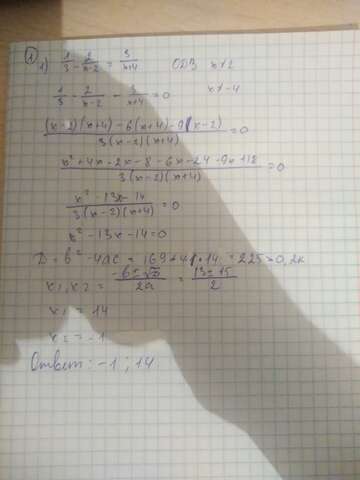 1
1) 1/3 - 2/(x-2) = 3/(x+4) ОДЗ x≠2
1/3 - 2/(x-2) - 3/(x+4) = 0 x≠-4
((x-2)(x+4)-6(x+4)-9(x-2))/(3(x-2)(x+4)) = 0
(x²+4x-2x-8-6x-24-9x+18)/(3(x-2)(x+4)) = 0
(x²-13x-14)/(3(x-2)(x+4)) = 0
x²-13x-14=0
D = b²-4ac = 169+4·14 = 225>0, 2к
x₁,x₂ = (-b±√D)/2a = (13±15)/2
x₁ = 14
x₂ = -1
Ответ: -1; 14